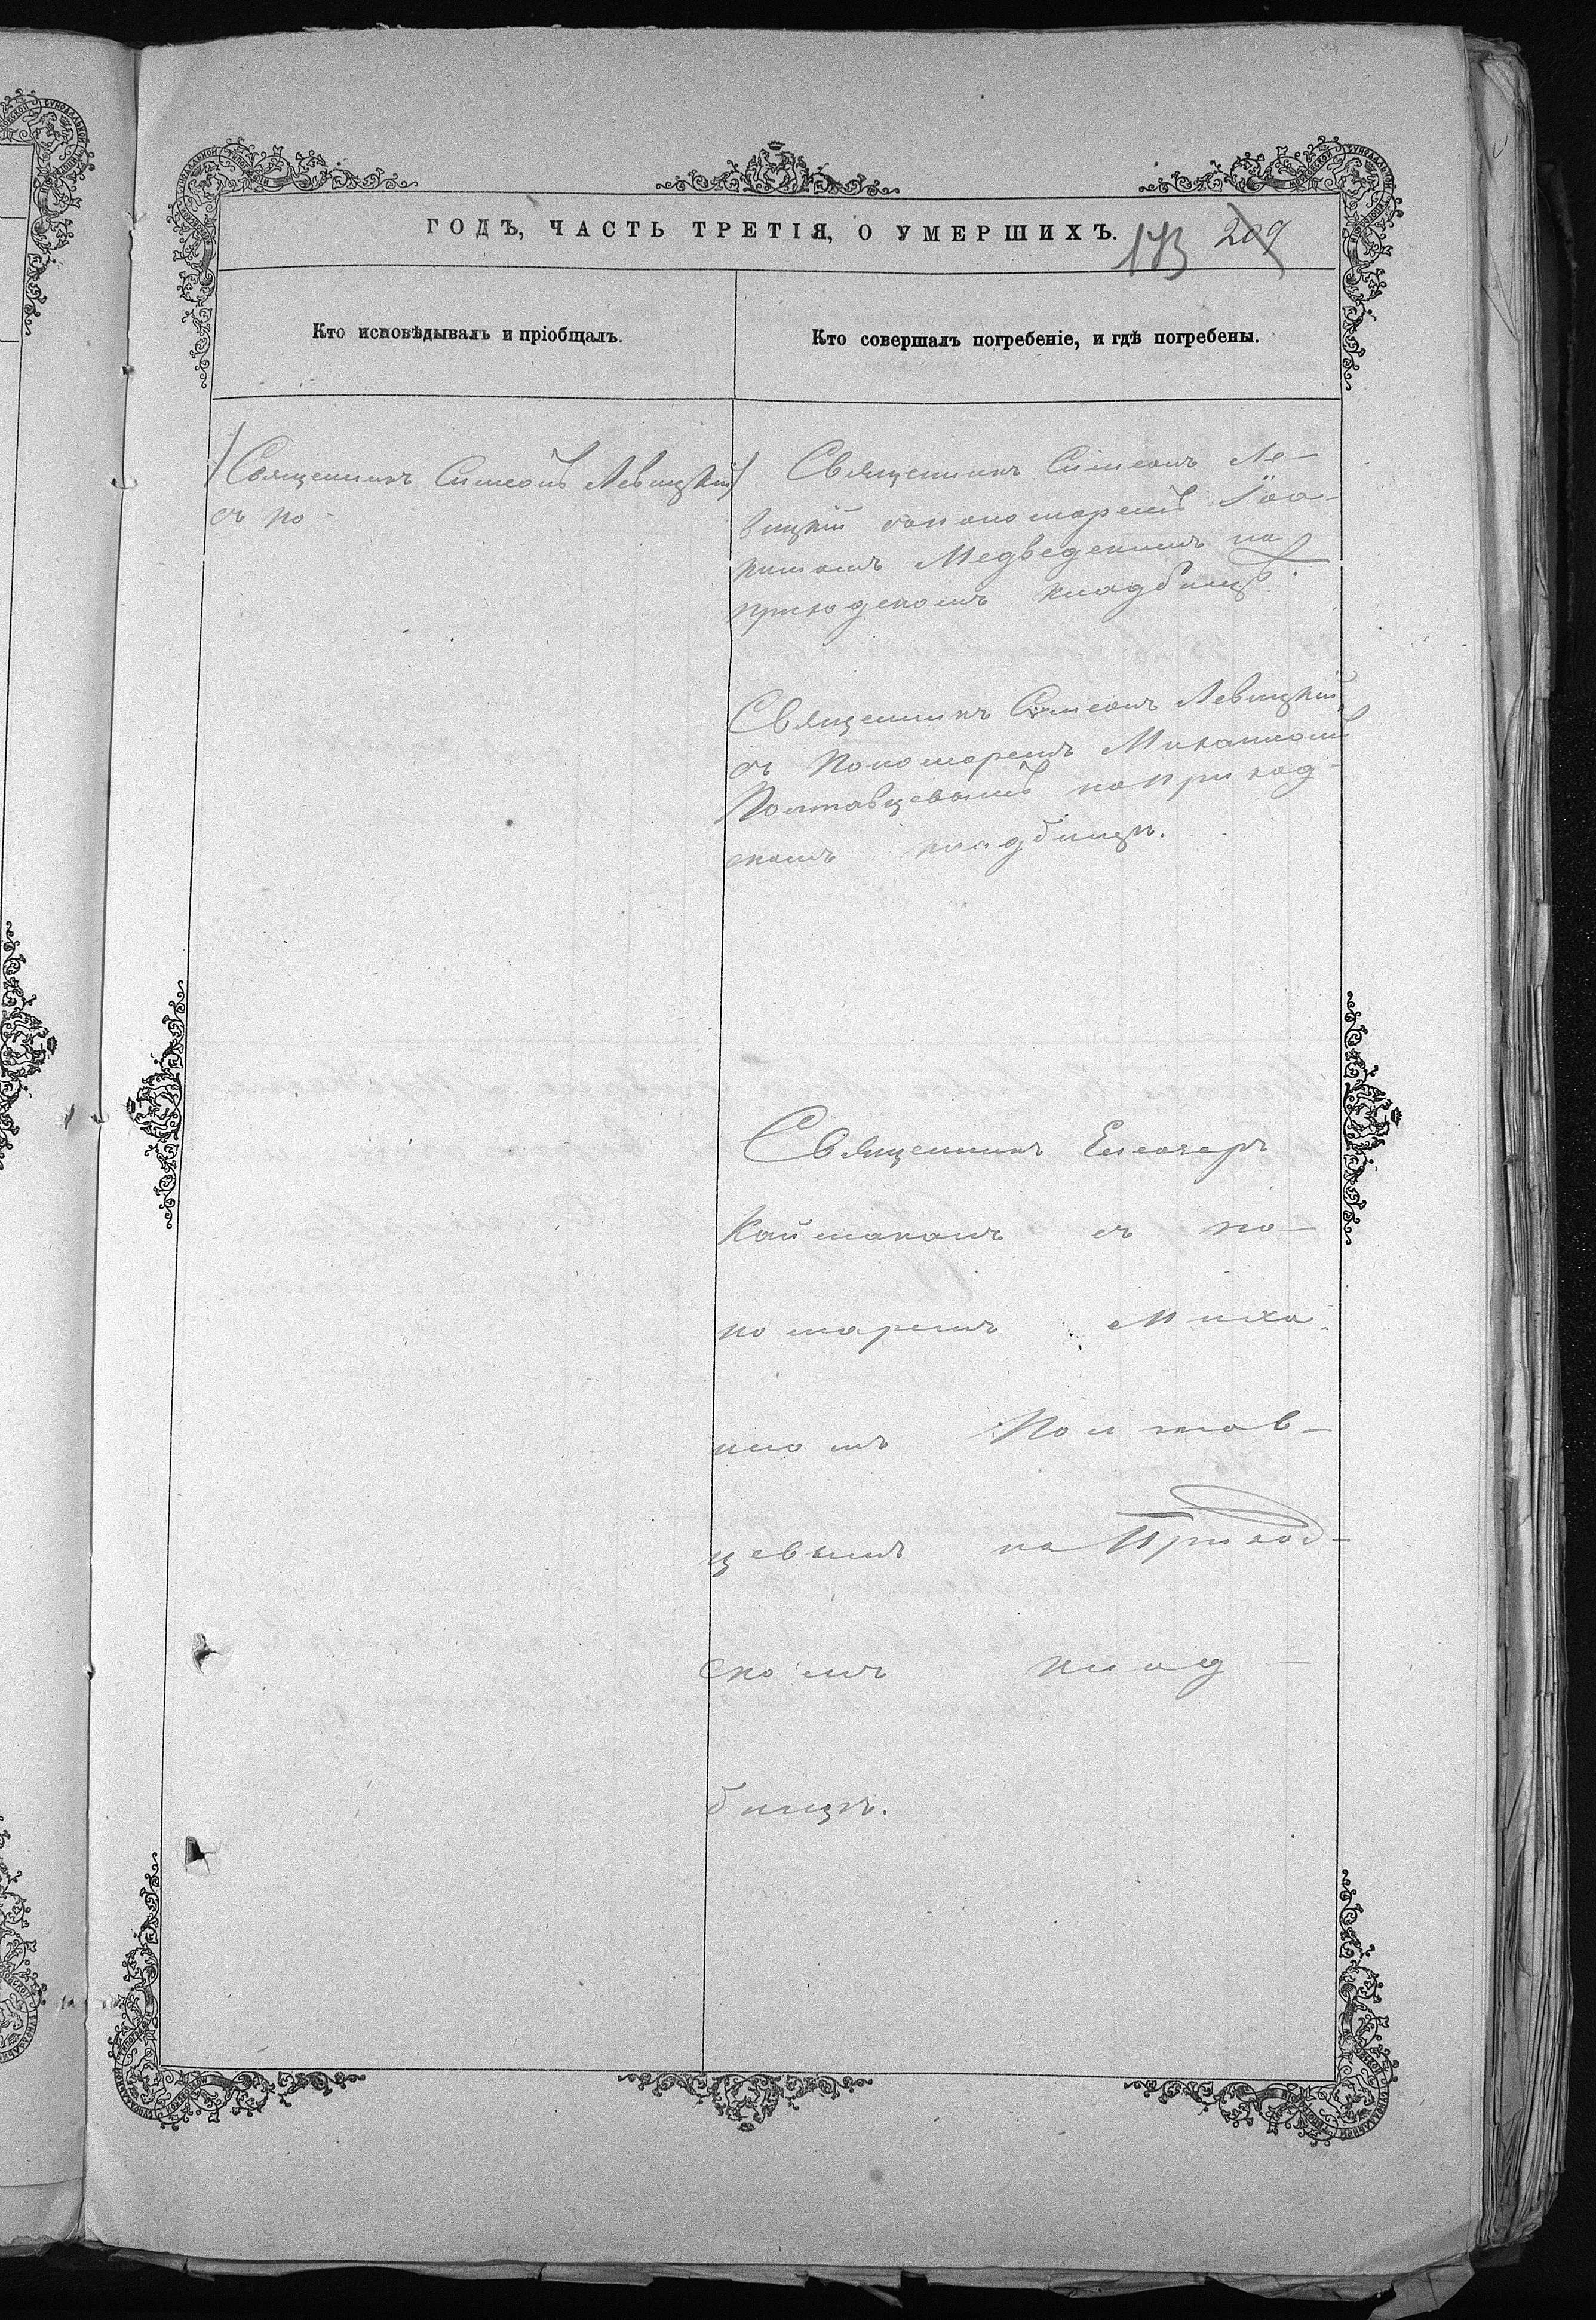 ГОДЪ, ЧАСТЬ ТРЕТІЯ, О УМЕРШИХЪ. 173 209
Кто исповѣдывалъ и пріобщалъ.
Кто совершалъ погребеніе, и гдѣ погребены.
Священникъ Симеонъ Левицкій
съ по
Священникъ Симеонъ Ле-
вицкій с пономаремъ Іоа-
Медведскимъ на
приходскомъ кладбищѣ.
Священникъ Симеонъ Левицкій
съ Пономаремъ Михаиломъ
Полтавцевымъ на приход-
скомъ кладбищѣ.
Священникъ Елеазаръ
Каймакамъ съ по-
номаремъ Миха-
иломъ Полтав-
цевымъ на Приход-
скомъ клад-
бищѣ.